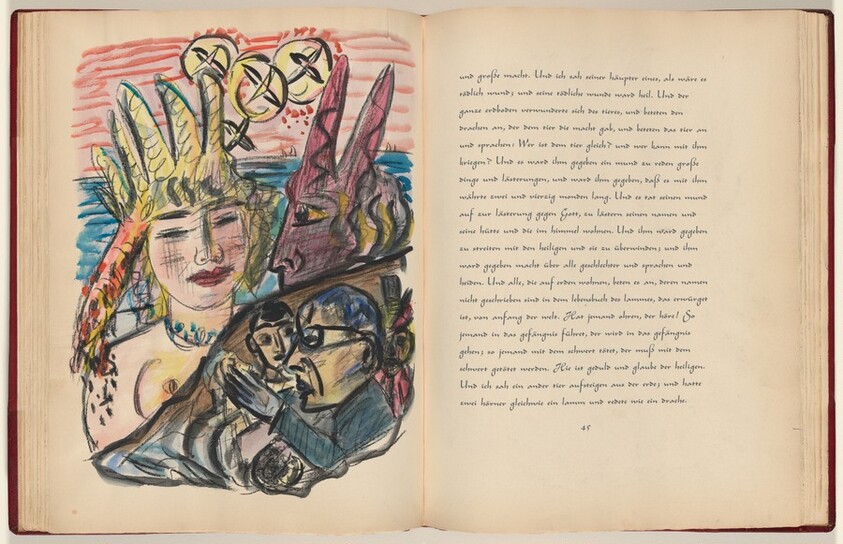 und große macht. Und ich sah seiner häupter eines, als wäre es
tödlich wund; und seine tödliche wunde ward heil. Und der
ganze erdboden verwunderte sich des tieres, und beteten den
drachen an, der dem tier die macht gab, und beteten das tier an
und sprachen: Wer ist dem tier gleich? und wer kann mit ihm
kriegen? Und es ward ihm gegeben ein mund zu reden große
dinge und lästerungen, und ward ihm gegeben, daß es mit ihm
währte zwei und vierzig monden lang. Und es tat seinen mund
auf zur lästerung gegen Gott, zu lästern seinen namen und
seine hütte und die im himmel wohnen. Und ihm ward gegeben
zu streiten mit den heiligen und sie zu überwinden; und ihm
ward gegeben macht über alle geschlechter und sprachen und
heiden. Und alle, die auf erden wohnen, beten es an, deren namen
nicht geschrieben sind in dem lebensbuch des lammes, das erwürget
ist, von anfang der welt. Hat jemand ohren, der höre! So
jemand in das gefängnis führet, der wird in das gefängnis
gehen; so jemand mit dem schwert tötet, der muß mit dem
schwert getötet werden. Hie ist geduld und glaube der heiligen.
Und ich sah ein ander tier aufsteigen aus der erde; und hatte
zwei hörner gleichwie ein lamm und redete wie ein drache.
45